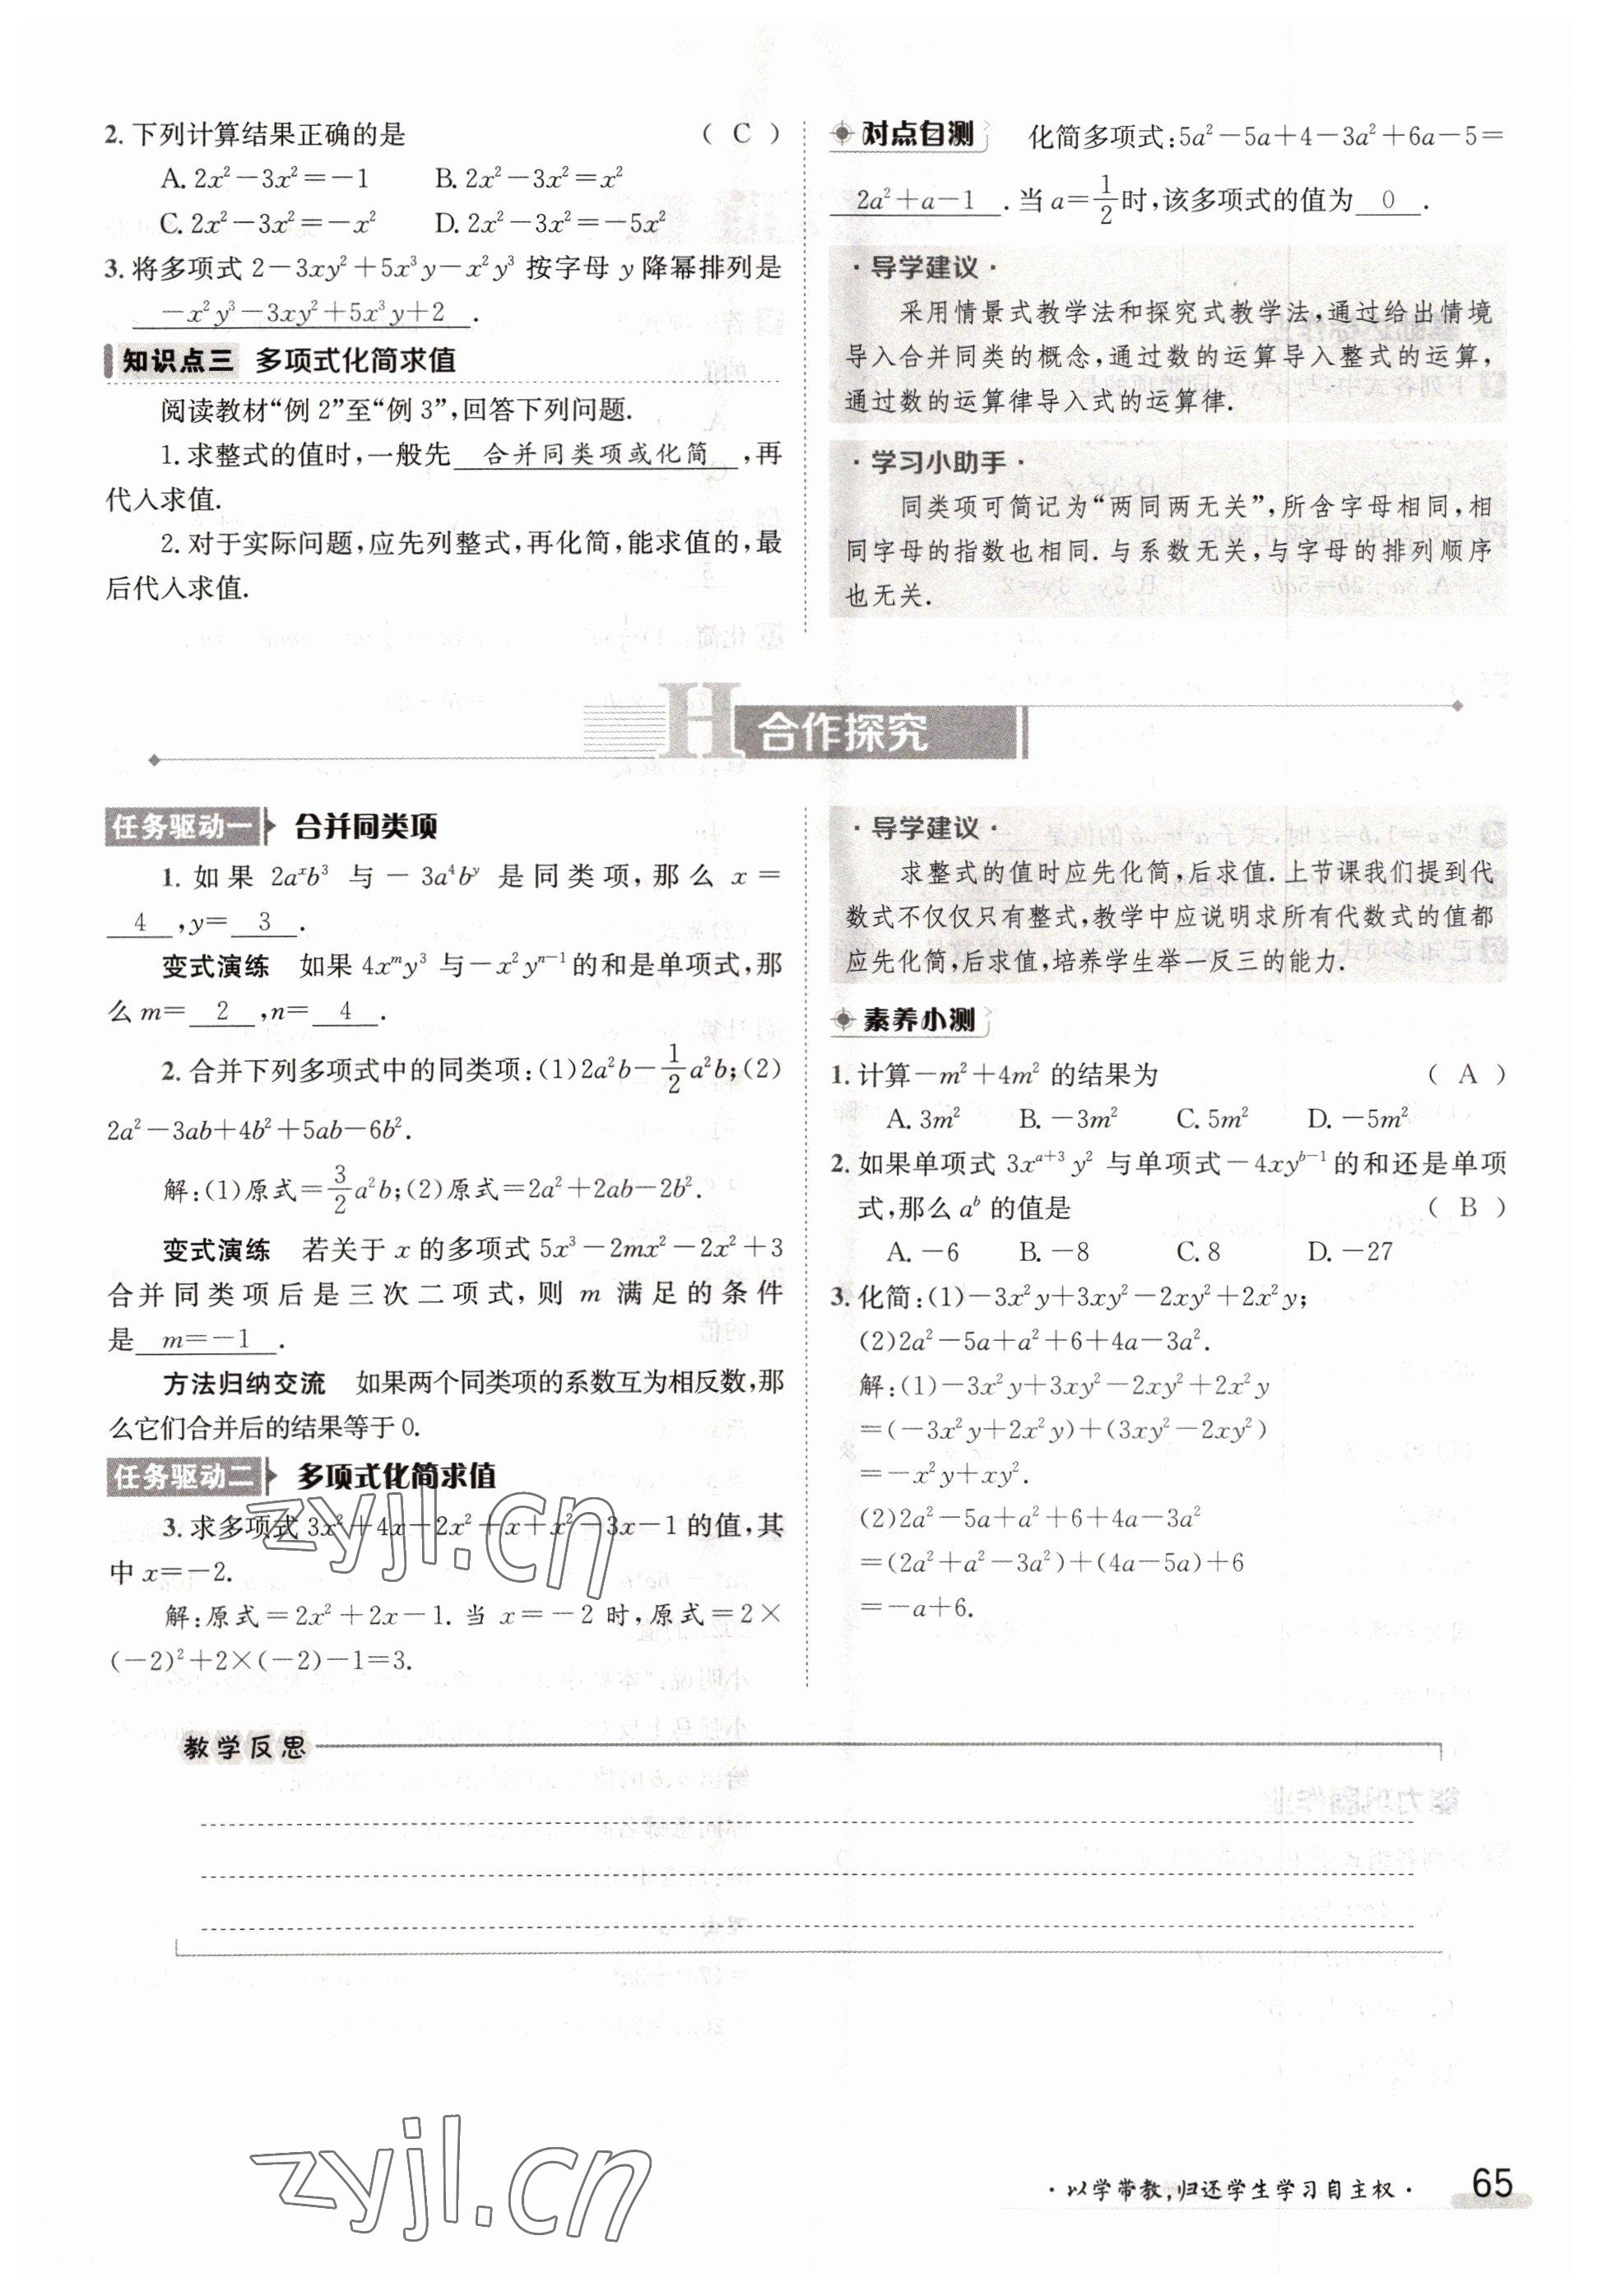 2. 下列计算结果正确的是 ( C )
A. 2x²－3x²＝－1 B. 2x²－3x²＝x²
C. 2x²－3x²＝－x² D. 2x²－3x²＝－5x²
3. 将多项式 2－3xy²＋5x³y－x²y³ 按字母 y 降幂排列是
－x²y³－3xy²＋5x³y＋2 .
知识点三 多项式化简求值
阅读教材“例 2”至“例 3”,回答下列问题.
1. 求整式的值时,一般先 合并同类项或化简 ,再
代入求值.
2. 对于实际问题,应先列整式,再化简,能求值的,最
后代入求值.
对点自测 化简多项式:5a²－5a＋4－3a²＋6a－5＝
2a²＋a－1 . 当 a＝1/2时,该多项式的值为 0 .
·导学建议·
采用情景式教学法和探究式教学法,通过给出情境
导入合并同类的概念,通过数的运算导入整式的运算,
通过数的运算律导入式的运算律.
·学习小助手·
同类项可简记为“两同两无关”,所含字母相同,相
同字母的指数也相同. 与系数无关,与字母的排列顺序
也无关.
H 合作探究
任务驱动一 合并同类项
1. 如果 2aˣb³ 与－3a⁴bʸ 是同类项,那么 x＝
4 ,y＝ 3 .
变式演练 如果 4xᵐy³ 与－x²yⁿ⁻¹的和是单项式,那
么 m＝ 2 ,n＝ 4 .
2. 合并下列多项式中的同类项:(1)2a²b－1/2a²b;(2)
2a²－3ab＋4b²＋5ab－6b².
解:(1)原式＝3/2a²b;(2)原式＝2a²＋2ab－2b².
变式演练 若关于 x 的多项式 5x³－2mx²－2x²＋3
合并同类项后是三次二项式,则 m 满足的条件
是 m＝－1 .
方法归纳交流 如果两个同类项的系数互为相反数,那
么它们合并后的结果等于 0.
任务驱动二 多项式化简求值
3. 求多项式 3x²＋4x－2x²＋x＋x²－3x－1 的值,其
中 x＝－2.
解:原式＝2x²＋2x－1. 当 x＝－2 时,原式＝2×
(－2)²＋2×(－2)－1＝3.
·导学建议·
求整式的值时应先化简,后求值. 上节课我们提到代
数式不仅仅只有整式,教学中应说明求所有代数式的值都
应先化简,后求值,培养学生举一反三的能力.
素养小测
1. 计算－m²＋4m² 的结果为 ( A )
A. 3m² B. －3m² C. 5m² D. －5m²
2. 如果单项式 3xᵃ⁺³y² 与单项式－4xyᵇ⁻¹的和还是单项
式,那么 aᵇ 的值是 ( B )
A. －6 B. －8 C. 8 D. －27
3. 化简:(1)－3x²y＋3xy²－2xy²＋2x²y;
(2)2a²－5a＋a²＋6＋4a－3a².
解:(1)－3x²y＋3xy²－2xy²＋2x²y
＝(－3x²y＋2x²y)＋(3xy²－2xy²)
＝－x²y＋xy².
(2)2a²－5a＋a²＋6＋4a－3a²
＝(2a²＋a²－3a²)＋(4a－5a)＋6
＝－a＋6.
zyjl.cn
教学反思
zyjl.cn
·以学带教,归还学生学习自主权· 65